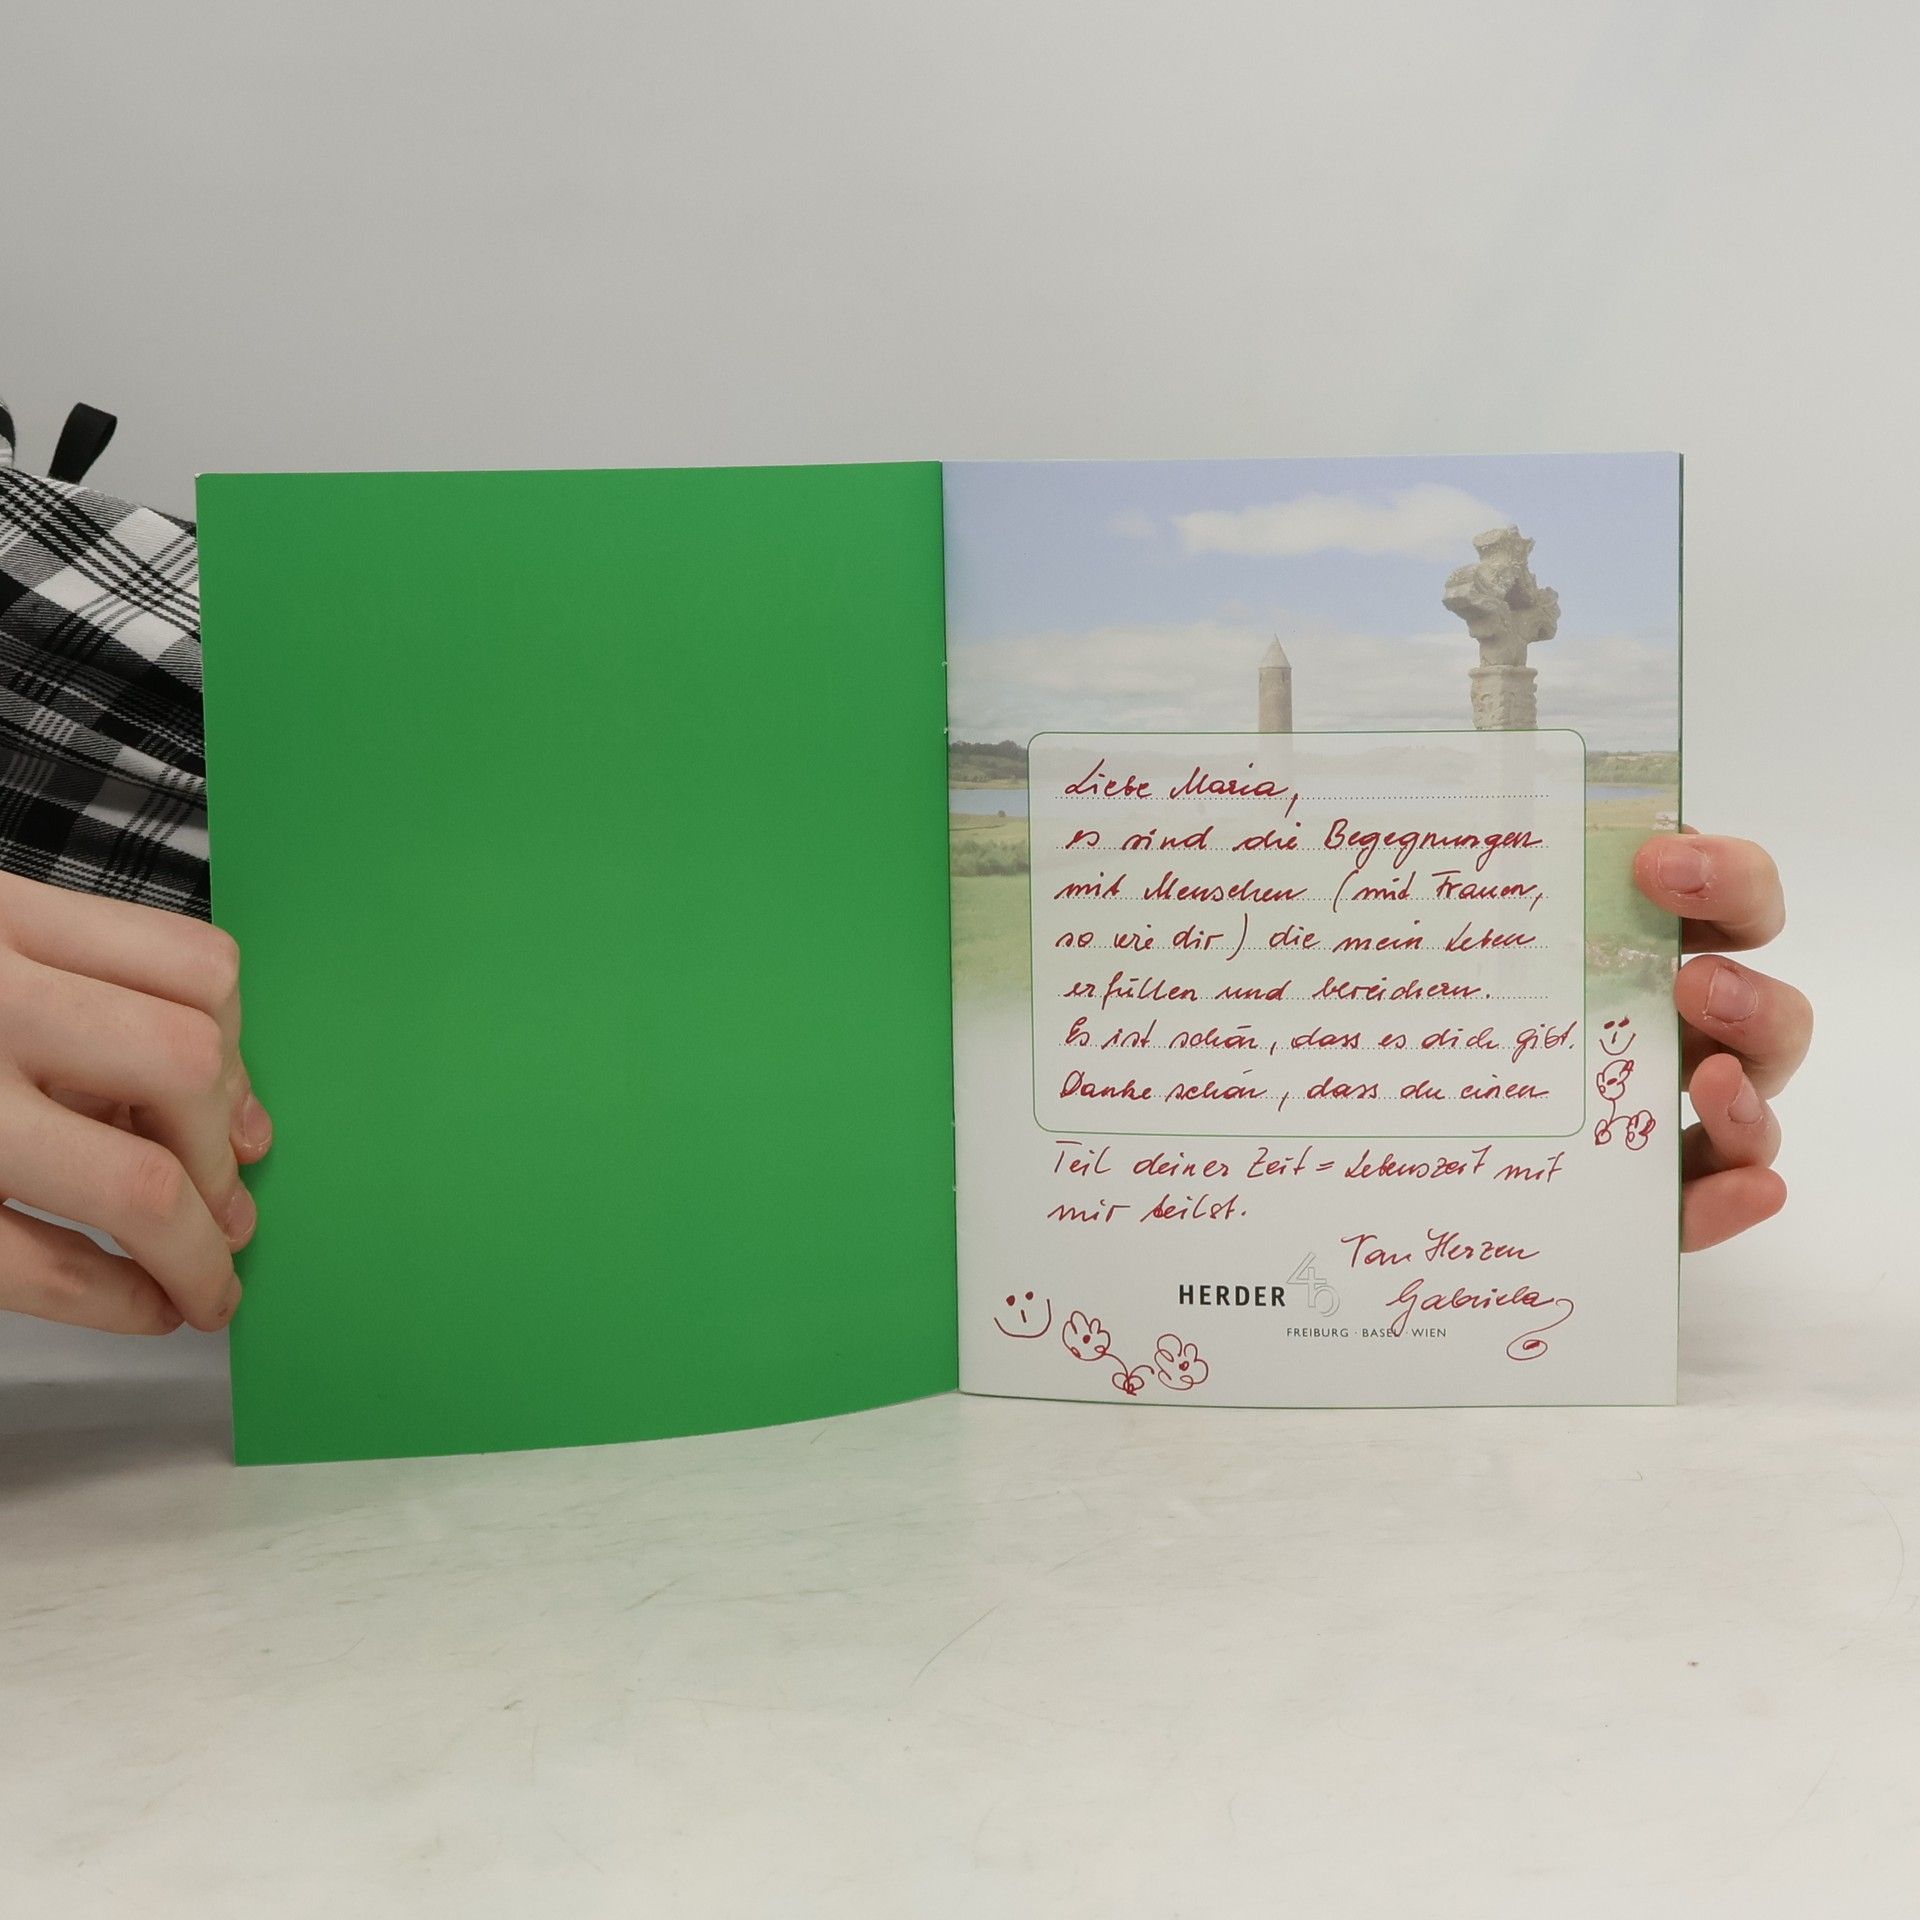 Liebe Maria,
es sind die Begegnungen
mit Menschen (mit Frauen,
so wie dir) die mein Leben
erfüllen und bereichern.
Es ist schön, dass es dich gibt.
Danke schön, dass du einen
Teil deiner Zeit = Lebenszeit mit
mir teilst.
Von Herzen
Gabriela
HERDER
FREIBURG · BASEL · WIEN